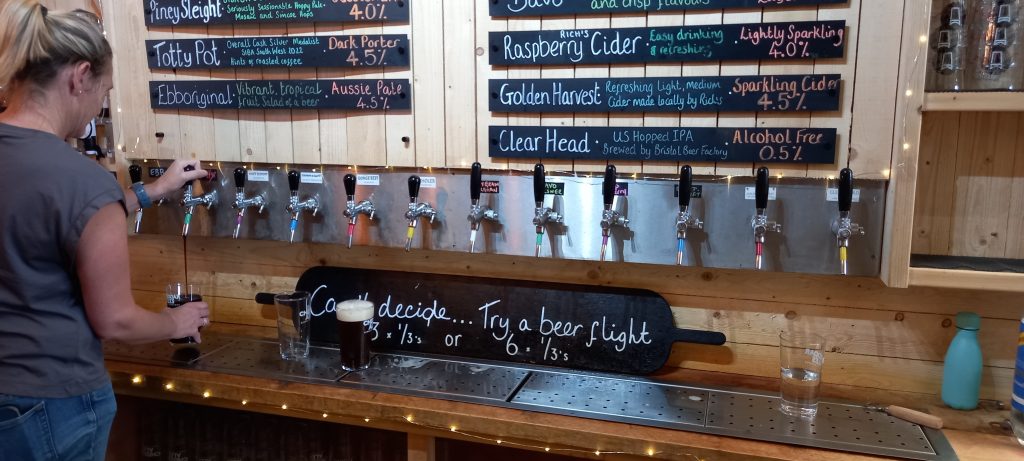 Piney Sleight
Seriously Sessionable Hoppy Pale
Mosaic and Simcoe Hops
4.0%
Totty Pot
Overall Cask Silver Medalist
SIBA South West 2022
Hints of roasted coffee
Dark Porter
4.5%
Ebboriginal
Vibrant, tropical
fruit Salad of a beer
Aussie Pale
4.5%
and crisp flavours
RICH'S
Raspberry Cider
Easy drinking
& refreshing
Lightly Sparkling
4.0%
Golden Harvest
Refreshing Light, medium
Cider made locally by Rich's
Sparkling Cider
4.5%
Clear Head
US Hopped IPA
Brewed by Bristol Beer Factory
Alcohol Free
0.5%
decide... Try a beer flight
3 x 1/3's or 6 x 1/3's